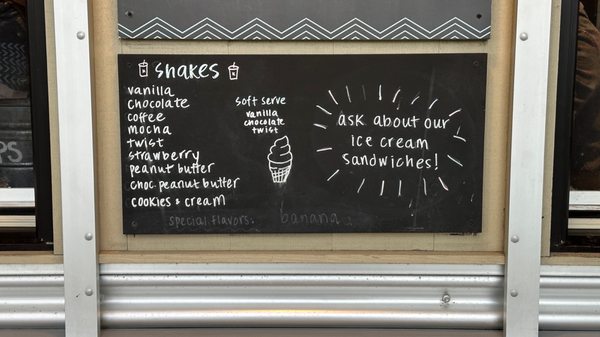 shakes
vanilla
chocolate
coffee
mocha
twist
strawberry
peanut butter
choc. peanut butter
cookies & cream
special flavors: banana
soft serve
vanilla
chocolate
twist
ask about our
ice cream
sandwiches!
PS